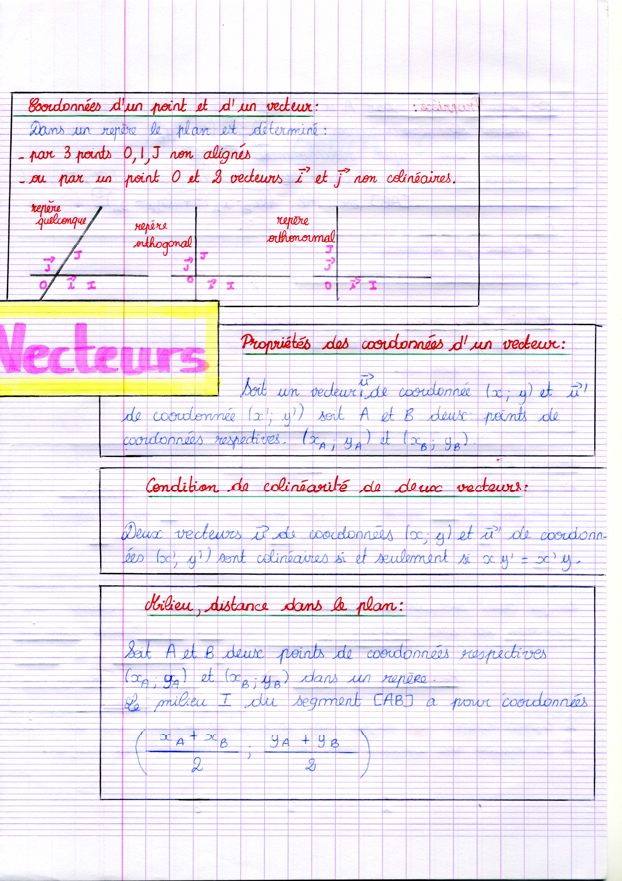 Coordonnées d'un point et d'un vecteur:
Dans un repère le plan est déterminé:
- par 3 points O, I, J non alignés
- ou par un point O et 2 vecteurs i⃗ et j⃗ non colinéaires.
repère
quelconque
J
j⃗
O i⃗ I
repère
orthogonal
J
j⃗
O i⃗ I
repère
orthonormal
J
j⃗
O i⃗ I
Vecteurs
Propriétés des coordonnées d'un vecteur:
Soit un vecteur u⃗ de coordonnée (x; y) et u⃗'
de coordonnée (x'; y') soit A et B deux points de
coordonnées respectives. (xA; yA) et (xB; yB)
Condition de colinéarité de deux vecteurs:
Deux vecteurs u⃗ de coordonnées (x; y) et u⃗' de coordonn-
ées (x', y') sont colinéaires si et seulement si x y' = x' y.
Milieu, distance dans le plan:
Soit A et B deux points de coordonnées respectives
(xA; yA) et (xB; yB) dans un repère.
Le milieu I du segment [AB] a pour coordonnées
(xA + xB / 2 ; yA + yB / 2)